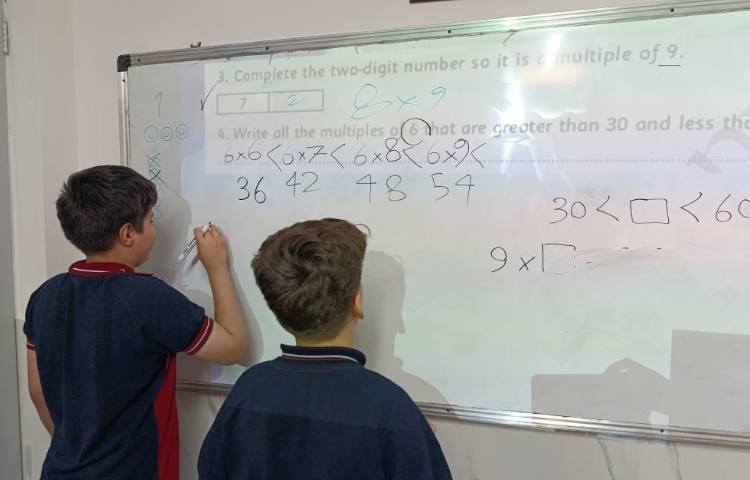 3. Complete the two-digit number so it is a multiple of 9.
7 2 8 × 9
4. Write all the multiples of 6 that are greater than 30 and less tha
6×6 < 6×7 < 6×8 < 6×9 <
36 42 48 54
30 < □ < 60
9 × □